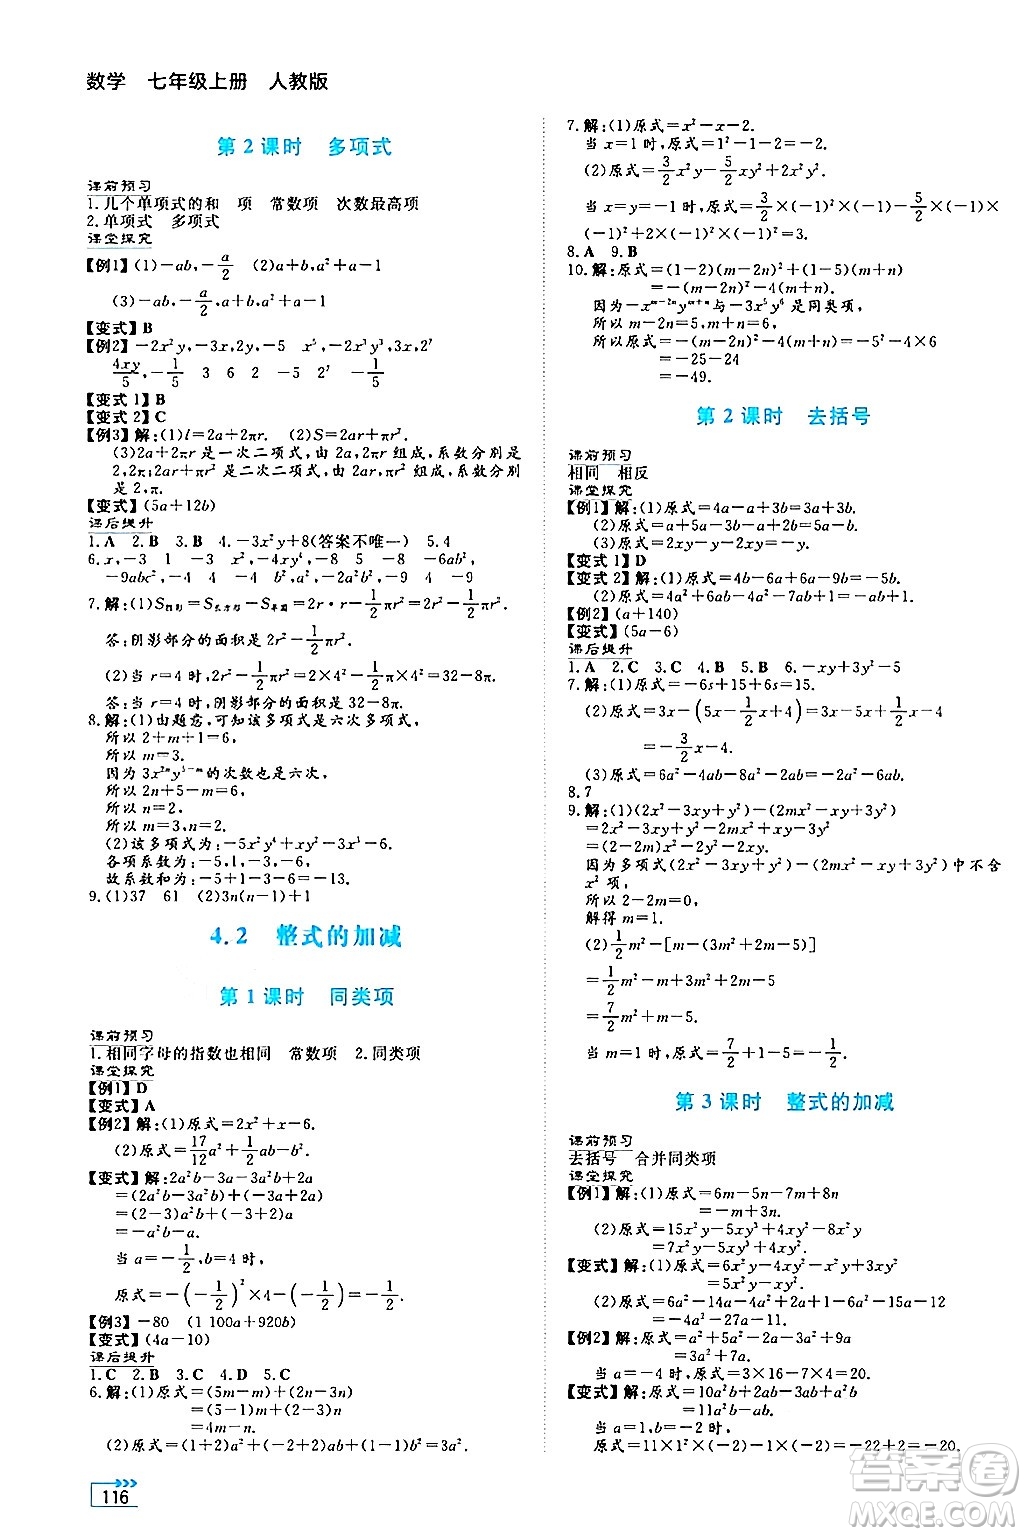 数学 七年级上册 人教版
第2课时 多项式
课前预习
1.几个单项式的和 项 常数项 次数最高项
2.单项式 多项式
课堂探究
【例1】(1)-ab,-a/2 (2)a²+a-1
(3)-ab,-a/2,a+b,a²+a-1
【变式】B
【例2】-2x²y,-3x,2y² x⁵,-2x³y³,2⁷
4xy/5,-1/5 3 6 2 -2
【变式1】B
【变式2】C
【例3】解:(1)l=2a+2πr. (2)S=2ar+πr².
(3)2a+2πr 是一次二项式,由 2a,2πr 组成,系数分别是
2,2π;2ar+πr² 是二次二项式,由 2ar,πr² 组成,系数分别为
2,π.
【变式】(5a+12b)
课后提升
1.A 2.B 3.B 4.-3x²y+8(答案不唯一) 5.4
7.解:(1)S阴影=S长方形-S半圆=2r·r-1/2πr²=2r²-1/2πr².
答:阴影部分的面积是2r²-1/2πr².
(2)当 r=4 时,2r²-1/2πr²=2×4²-1/2×π×4²=32-8π.
答:当 r=4 时,阴影部分的面积是 32-8π.
8.解:(1)由题意,可知该多项式是六次多项式,
所以 2+m+1=6.
所以 m=3.
因为 3x²ⁿy⁵⁻ᵐ 的次数也是六,
所以 2n+5-m=6.
所以 n=2.
所以 m=3,n=2.
(2)该多项式为:-5x²y⁴+xy²-3x³-6.
各项系数为:-5,1,-3,-6.
故系数和为:-5+1-3-6=-13.
9.(1)37 61 (2)3n(n-1)+1
4.2 整式的加减
第1课时 同类项
课前预习
1.相同字母的指数也相同 常数项 2.同类项
课堂探究
【例1】D
【变式】A
【例2】解:(1)原式=2x²+x-6.
(2)原式=17/12a²+1/2ab-b²
【变式】解:2a²b-3a-3a²b+2a
=(2a²b-3a²b)+(-3a+2a)
=(2-3)a²b+(-3+2)a
=-a²b-a.
当 a=-1/2,b=4 时,
原式=-(-1/2)²×4-(-1/2)=-1/2.
【例3】-80 (1 100a+920b)
【变式】(4a-10)
课后提升
1.C 2.B 3.C 4.D 5.A
6.解:(1)原式=(5m-m)+(2n-3n)
=(5-1)m+(2-3)n
=4m-n.
(2)原式=(1+2)a²+(-2+2)ab+(1-1)b²=3a².
7.解:(1)原式=x²-x-2.
当 x=1 时,原式=1²-1-2=-2.
(2)原式=3/2x²y-5/2xy²+2.
当 x=y=-1 时,原式=3/2×(-1)²×(-1)-5/2×(-1)×
(-1)²+2=3.
8.A 9.B
10.解:原式=(1-2)(m-2n)+(1-5)(m+n)
=-(m-2n)-4(m+n).
因为-xᵐ⁻²ⁿyᵐ⁺ⁿ与-3x⁵y⁶是同类项,
所以 m-2n=5,m+n=6.
所以原式=-(m-2n)-4(m+n)=-5-4×6
=-25-24
=-49.
第2课时 去括号
课前预习
相同 相反
课堂探究
【例1】解:(1)原式=4a-a+3b=3a+3b.
(2)原式=a+5a-3b-a+2b=5a-b.
(3)原式=2xy-y-2xy=-y.
【变式1】D
【变式2】解:(1)原式=4b-6a+6a-9b=-5b.
(2)原式=4a²+6ab-4a²-7ab+1=-ab+1.
【例2】(a+140)
【变式】(5a-6)
课后提升
1.A 2.C 3.C 4.B 5.B 6.-xy+3y²-5
7.解:(1)原式=-6s+15+6s=15.
(2)原式=3x-(5x-1/2x+4)=3x-5x+1/2x-4
=-3/2x-4.
(3)原式=6a²-4ab-8a²+2ab=-2a²-6ab.
8.7
9.解:(1)(2x²-3xy+y²)-(2mx²-xy+3y²)
=2x²-3xy+y²-2mx²+xy-3y²
=(2-2m)x²-2xy-2y².
因为多项式(2x²-3xy+y²)-(2mx²-xy+3y²)中不含
x² 项,
所以 2-2m=0.
解得 m=1.
(2)1/2m²-[m-(3m²+2m-5)]
=1/2m²-m+3m²+2m-5
=7/2m²+m-5.
当 m=1 时,原式=7/2+1-5=-1/2.
第3课时 整式的加减
课前预习
去括号 合并同类项
课堂探究
【例1】解:(1)原式=6m-5n-7m+8n
=-m+3n.
(2)原式=15x²y-5xy²+4xy²-8x²y
=7x²y-xy².
【变式】解:(1)原式=6x²y-3xy²+xy²-x²y
=5x²y-2xy².
(2)原式=6a²-14a-4-10a²+15a-12
=-4a²+a-16.
【例2】解:原式=a²+5a²-2a-3a²+9a
=3a²+7a.
当 a=-4 时,原式=3×16-7×4=20.
【变式】解:原式=10a²b+2ab-2ab+a²b
=11a²b.
当 a=1,b=-2 时,
原式=11×1²×(-2)+2=-22+2=-20.
116
答案圈
MXQE.COM